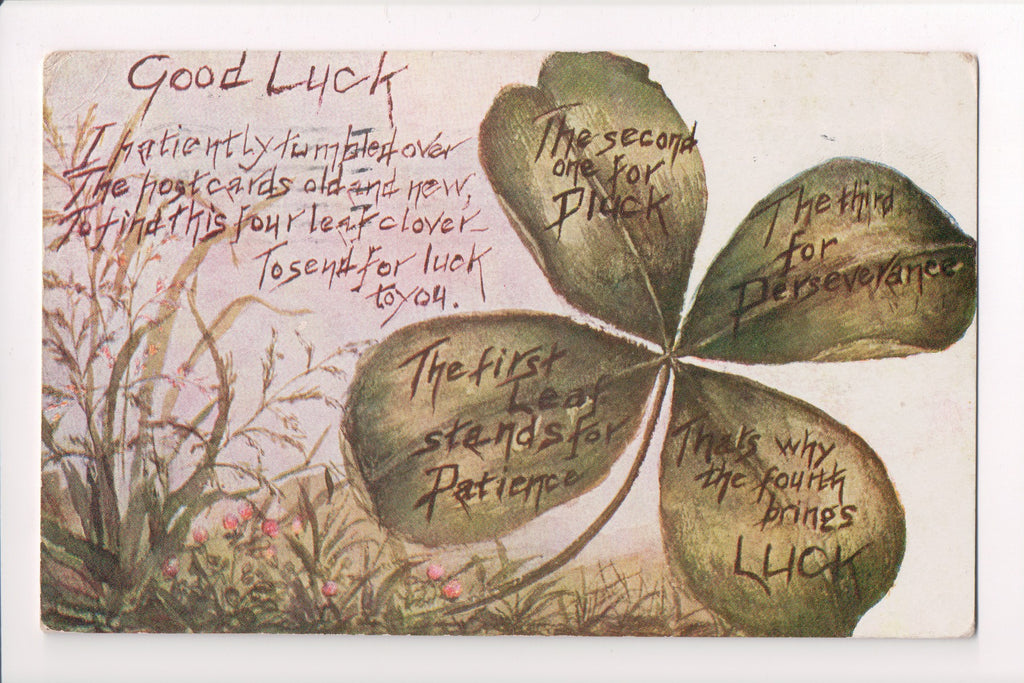 Good Luck
I patiently tumbled over
The postcards old and new,
To find this four leaf clover_
To send for luck
to you.
The first
Leaf
stands for
Patience
The second
one for
Pluck
The third
for
Perseverance
Thats why
the fourth
brings
LUCK